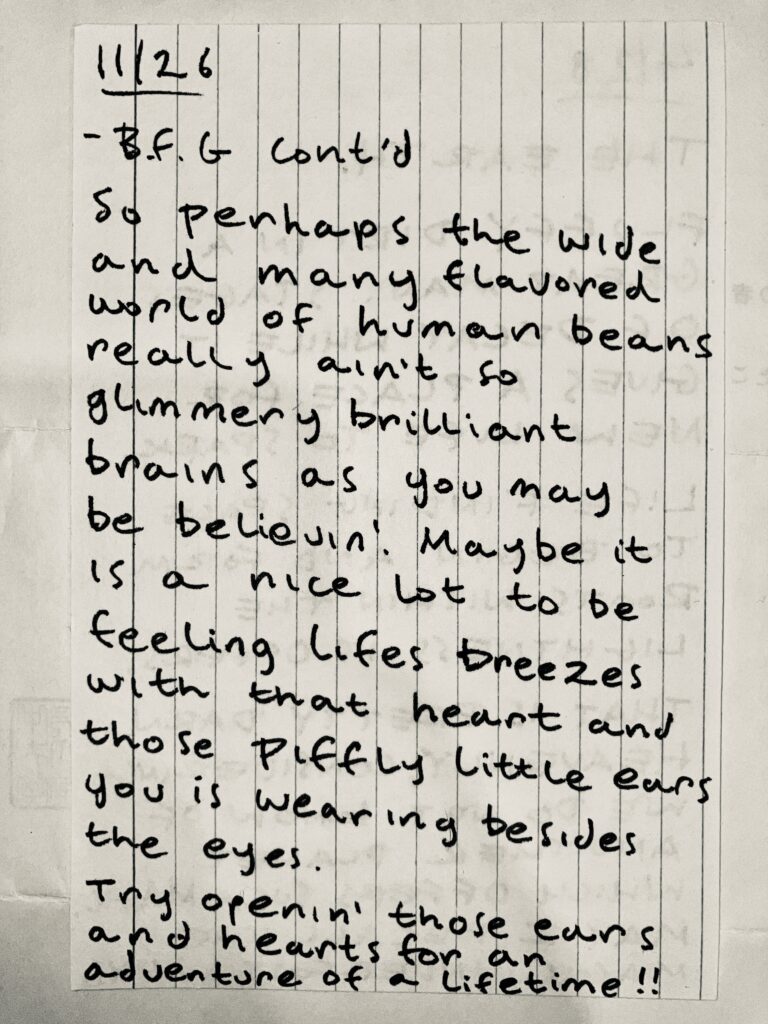 11/26
- B.F.G cont'd
So perhaps the wide
and many flavored
world of human beans
really ain't so
glimmery brilliant
brains as you may
be believin'. Maybe it
is a nice lot to be
feeling lifes breezes
with that heart and
those piffly little ears
you is wearing besides
the eyes.
Try openin' those ears
and hearts for an
adventure of a lifetime!!